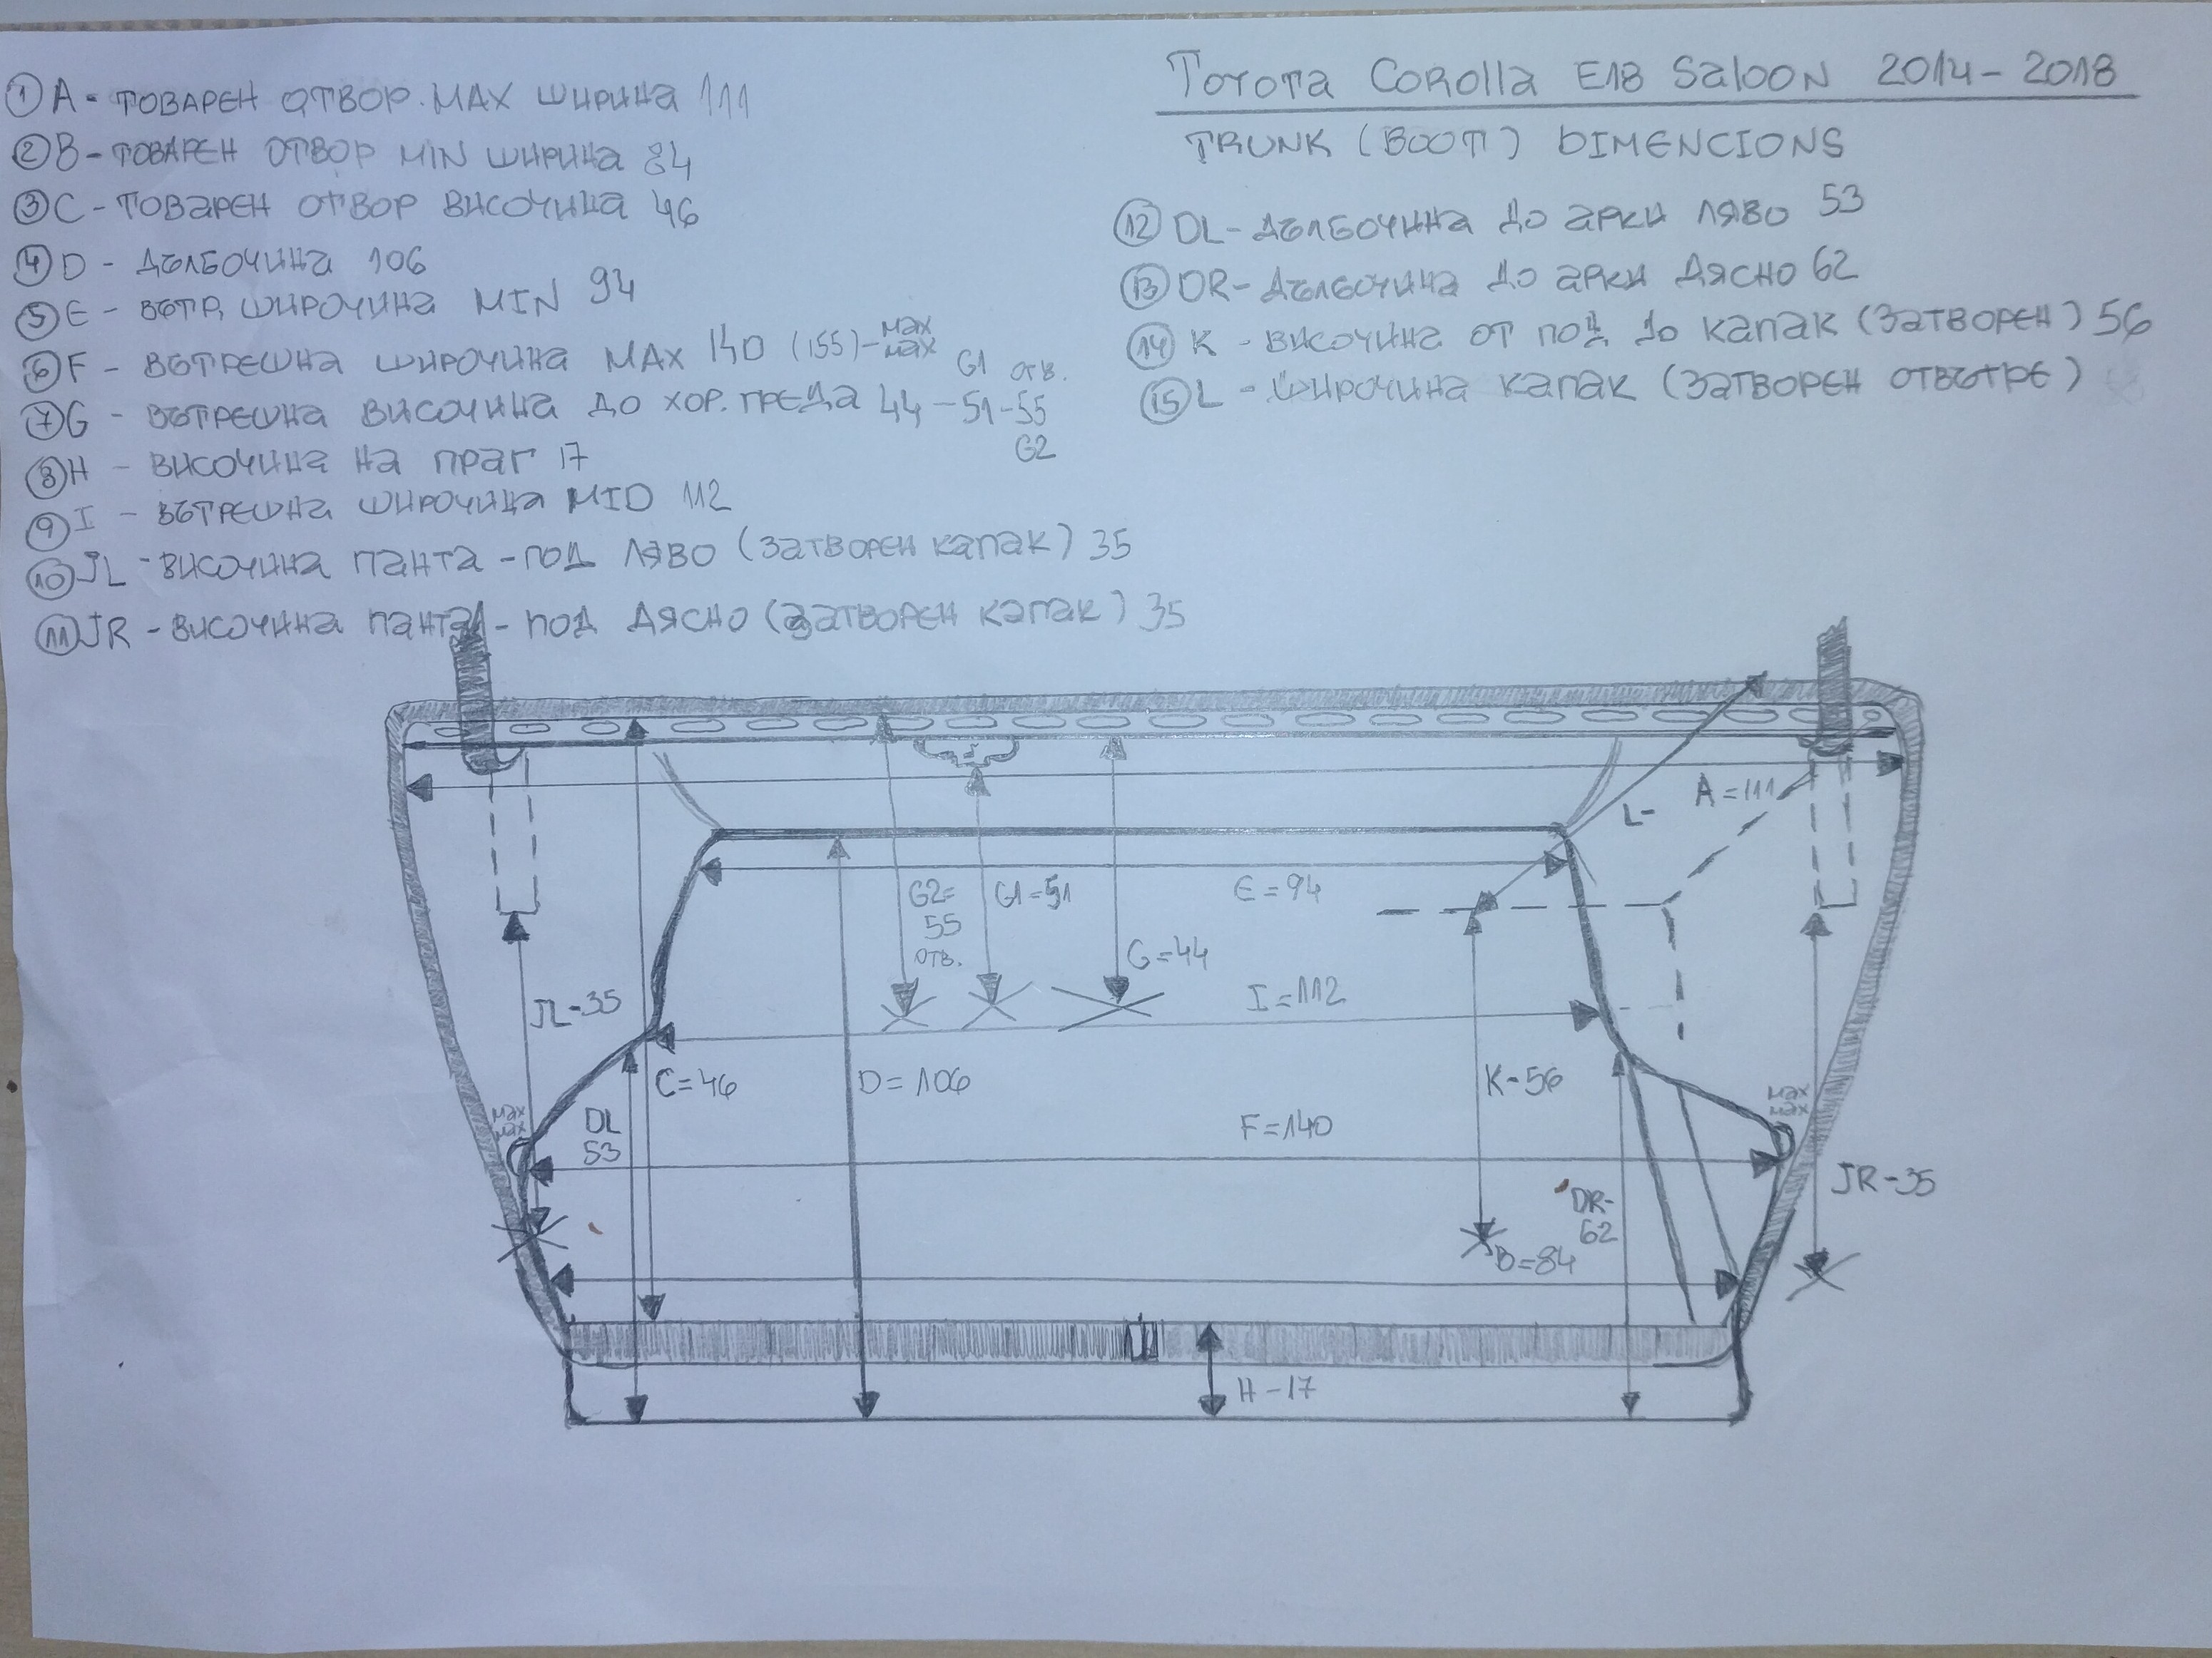 Toyota Corolla E18 Saloon 2014-2018
TRUNK (BOOT) DIMENCIONS
① A - ТОВАРЕН ОТВОР. MAX ШИРИНА 111
② B - ТОВАРЕН ОТВОР MIN ШИРИНА 84
③ C - ТОВАРЕН ОТВОР ВИСОЧИНА 46
④ D - ДЪЛБОЧИНА 106
⑤ E - ВЪТР, ШИРОЧИНА MIN 94
⑥ F - ВЪТРЕШНА ШИРОЧИНА MAX 140 (155)-max max
G1 ОТВ.
⑦ G - ВЪТРЕШНА ВИСОЧИНА ДО ХОР. ГРЕДА 44-51-55
G2
⑧ H - ВИСОЧИНА НА ПРАГ 17
⑨ I - ВЪТРЕШНА ШИРОЧИНА MID 112
⑩ JL - ВИСОЧИНА ПАНТА - ПОД ЛЯВО (ЗАТВОРЕН КАПАК) 35
⑪ JR - ВИСОЧИНА ПАНТА - ПОД ДЯСНО (ЗАТВОРЕН КАПАК) 35
⑫ DL - ДЪЛБОЧИНА ДО АРКИ ЛЯВО 53
⑬ DR - ДЪЛБОЧИНА ДО АРКИ ДЯСНО 62
⑭ K - ВИСОЧИНА ОТ ПОД ДО КАПАК (ЗАТВОРЕН) 56
⑮ L - ШИРОЧИНА КАПАК (ЗАТВОРЕН ОТВЪТРЕ)
A=111
L-
G2=
55
ОТВ.
G1=51
E=94
G=44
JL-35
I=112
C=46
D=106
K-56
max
max
DL
53
F=140
max
max
JR-35
DR-
62
B=84
H-17